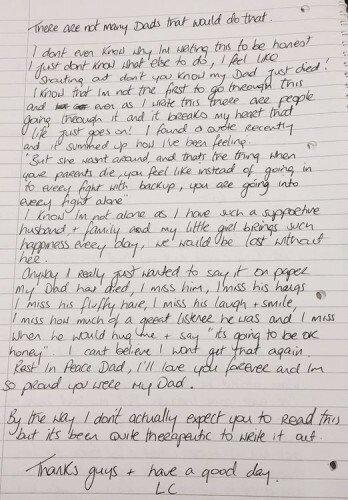 There are not many Dads that would do that.
I dont even know why Im writing this to be honest
I just dont know what else to do, I feel like
shouting out dont you know my Dad just died!
I know that Im not the first to go through this
and even as I write this there are people
going through it and it breaks my heart that
life just goes on! I found a quote recently
and it summed up how i've been feeling
"But she wasnt around, and thats the thing when
your parents die, you feel like instead of going in
to every fight with backup, you are going into
every fight alone"
I know Im not alone as I have such a supportive
husband + family and my little girl brings such
happiness every day, we would be lost without
her.
Anyway I really just wanted to say it on paper
my Dad has died, I miss him, I miss his hugs
I miss his fluffy hair, I miss his laugh + smile,
I miss how much of a great listener he was and I miss
when he would hug me + say "its going to be OK
honey". I cant believe I wont get that again.
Rest In Peace Dad, I'll love you forever and Im
so proud you were my Dad.
By the way I don't actually expect you to read this
but its been quite therapeutic to write it out.
Thanks guys + have a good day.
LC